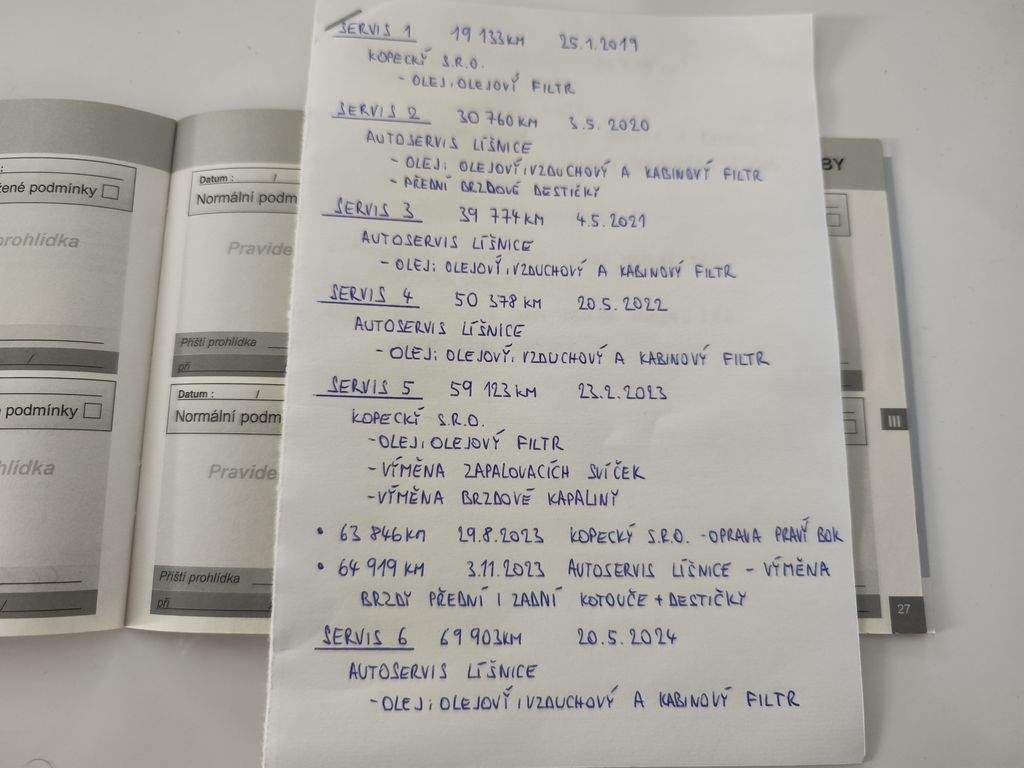 SERVIS 1 19 133KM 25.1.2019
KOPECKÝ S.R.O.
- OLEJ, OLEJOVÝ FILTR
SERVIS 2 30 760KM 3.5.2020
AUTOSERVIS LÍŠNICE
- OLEJ, OLEJOVÝ, VZDUCHOVÝ A KABINOVÝ FILTR
- PŘEDNÍ BRZDOVÉ DESTIČKY
SERVIS 3 39 774KM 4.5.2021
AUTOSERVIS LÍŠNICE
- OLEJ, OLEJOVÝ, VZDUCHOVÝ A KABINOVÝ FILTR
SERVIS 4 50 378KM 20.5.2022
AUTOSERVIS LÍŠNICE
- OLEJ, OLEJOVÝ, VZDUCHOVÝ A KABINOVÝ FILTR
SERVIS 5 59 123KM 23.2.2023
KOPECKÝ S.R.O.
- OLEJ, OLEJOVÝ FILTR
- VÍMĚNA ZAPALOVACÍCH SVÍČEK
- VÝMĚNA BRZDOVÉ KAPALINY
• 63 846KM 29.8.2023 KOPECKÝ S.R.O. - OPRAVA PRAVÝ BOK
• 64 919KM 3.11.2023 AUTOSERVIS LÍŠNICE - VÝMĚNA
BRZDY PŘEDNÍ I ZADNÍ KOTOUČE + DESTIČKY
SERVIS 6 69 903KM 20.5.2024
AUTOSERVIS LÍŠNICE
- OLEJ, OLEJOVÝ, VZDUCHOVÝ A KABINOVÝ FILTR
podmínky
prohlídka
podmínky
Datum : /
Normální podm
Pravide
Příští prohlídka
při /
Datum : /
Normální podm
Pravide
Příští prohlídka
při /
BY
III
27